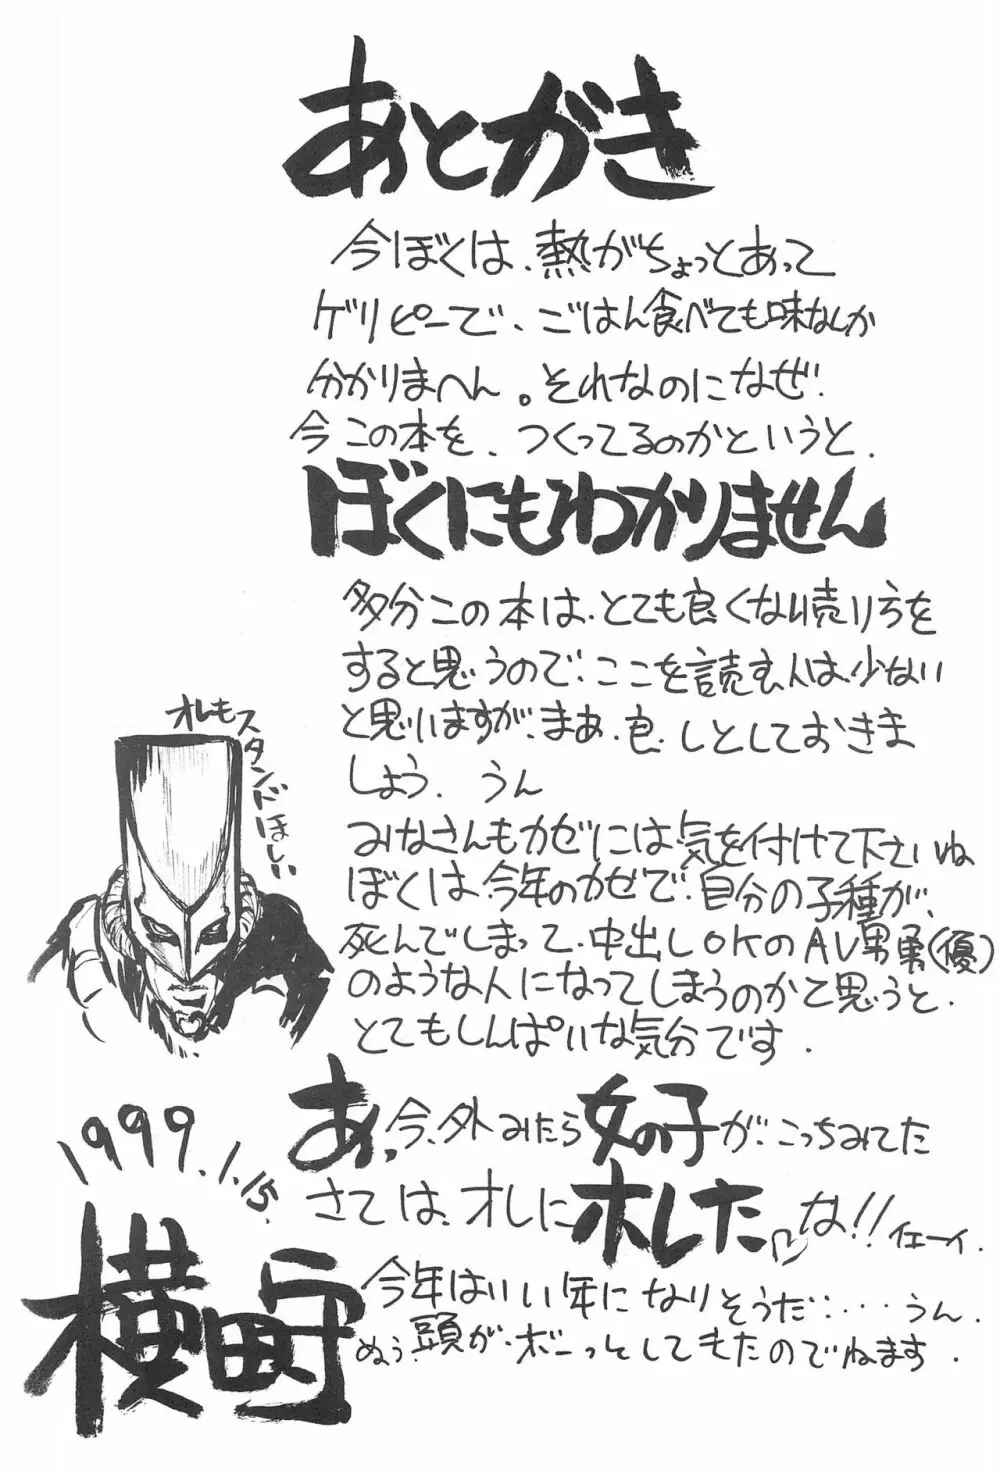 あとがき
今ぼくは、熱がちょっとあって
ゲリピーで、ごはん食べても味なんか
分かりまへん。それなのになぜ!
今この本を、つくってるのかというと、
ぼくにもわかりません
多分この本は、とても良くない売り方を
すると思うので、ここを読む人は少ない
と思いますが、まあ、良しとしておきま
しょう。うん
みなさんもカゼには気を付けて下さいね
ぼくは、今年のカゼで、自分の子種が、
死んでしまって、中出しOKのAV男勇(優)
のような人になってしまうのかと思うと、
とてもしんぱいな気分です。
オレもスタンドほしい
あ、今、外みたら女の子が、こっちみてた
さては、オレにホレたな!! イエーイ。
今年はいい年になりそうだ・・・・うん。
ぬぅ、頭が、ボーっとしてきたのでねます。
1999.1.15.